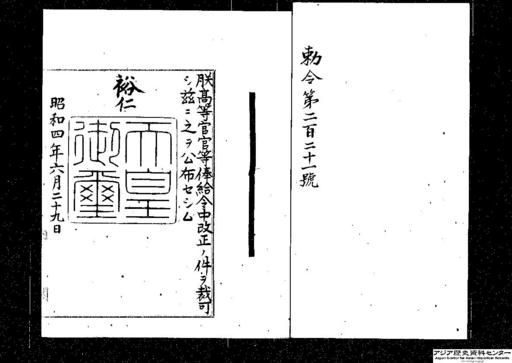 勅令第二百二十一號
朕高等官官等俸給令中改正ノ件ヲ裁可
シ茲ニ之ヲ公布セシム
裕仁
天皇
御璽
昭和四年六月二十九日
アジア歴史資料センター
Japan Center for Asian Historical Records